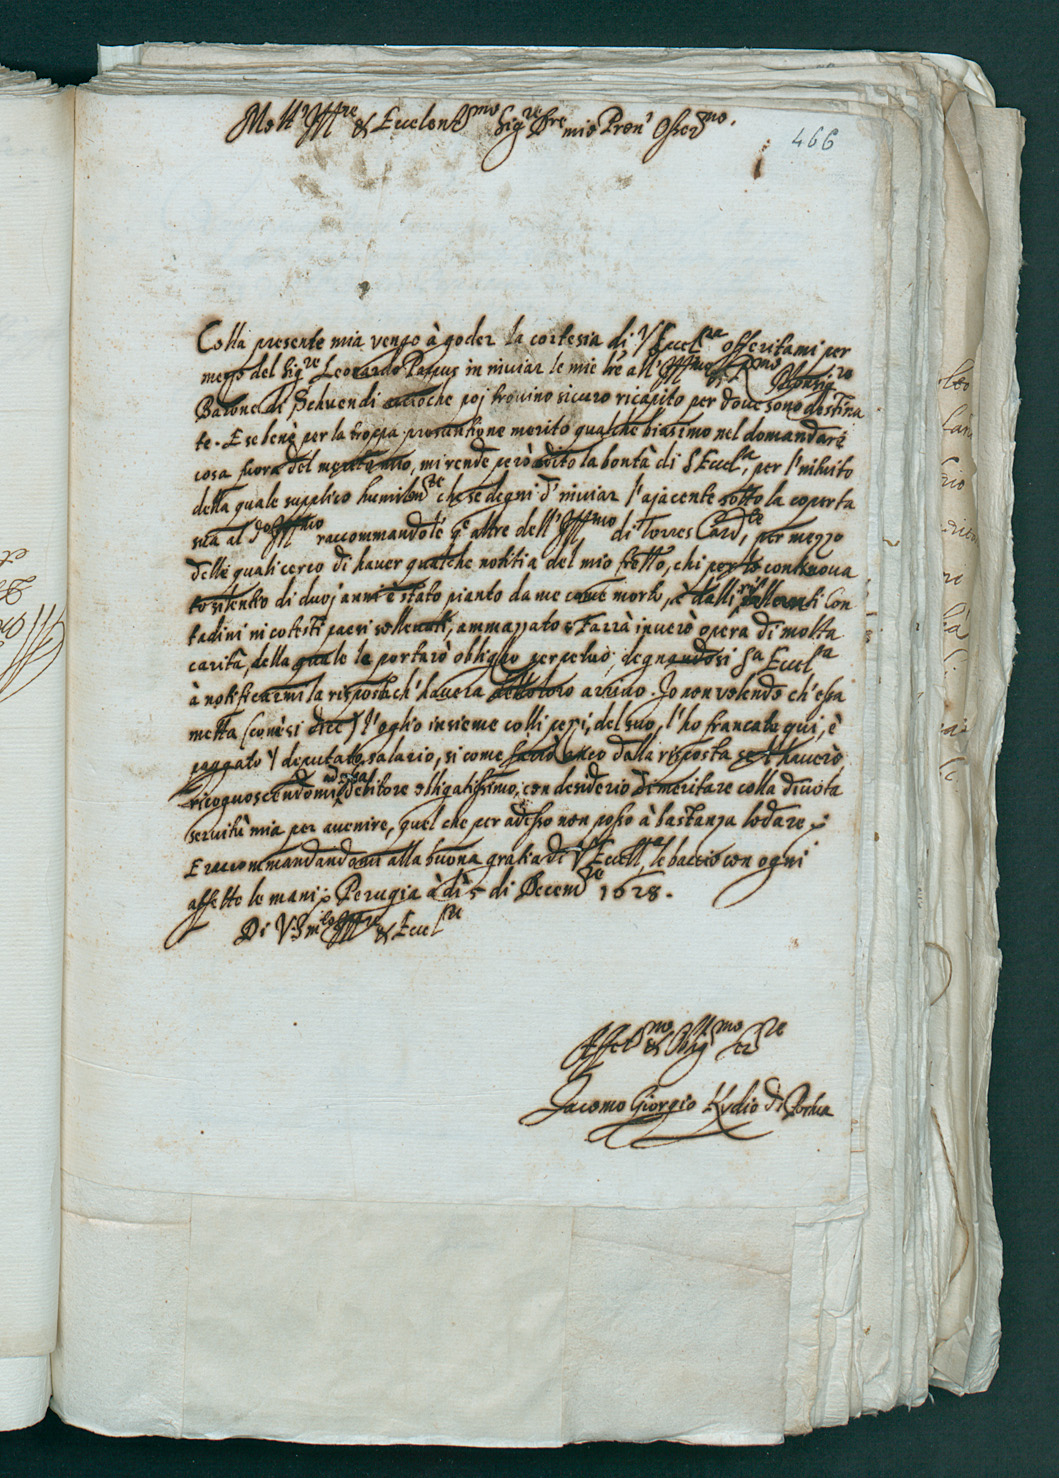 Molt' Ill.re & Eccelent.mo Sig.re P̃re mio Pron' Osser.mo.
466
Colla presente mia vengo à goder la cortesia di V Eccel.za offeritami per
mezo del Sig.re Leonardo Pappus in inviar le mie lr̃e all' Ill.mo & R.mo Monsig.re
Barone di Schvendi accioche poj trovino sicuro ricapito per dove sono destina
te. E se benè per la troppa presuntione merito qualche biasimo nel domandarè
cosa fuora del merito mio, mi rende però ardito la bontà di S Eccel.za, per l'inhuito
della quale supplico humilm.te che se degni d'inviar l'ajacente sotto la coperta
sua al d.o Ill.mo raccommandotè q.e altre dell' Ill.mo di Torres Card.le, per mezzo
delle quali cerco di haver qualche notitia del mio fr̃etto, chi per lo continoua
to silentio di duoj anni è stato pianto da me come morto, è dalli ribellanti Con
tadini in cotesti paesi sollevati, ammazzato. Farrà inverò opera di molta
carità, della quale le portarò obbligo perpetuò, degnandosi S.a Eccel.za
à notificarmi la risposta ch'havera dello loro arrivo. Io non volendo ch'essa
metta (com'si dice) l'oglio insieme colli pepi, del suo, l'ho francate qui, è
paggato l' deputato salario, si come farrò anco dalla risposta se l'haverò,
ricognoscendomi ad essa debitore obligatissimo, con desiderio di meritare colla divota
servitù mia per avenire, quel che per adesso non posso à bastanza lodare.
E raccommandandomi alla buona gratia di V Eccell.za, le baccio con ogni
affetto le mani. Perugia à di 5 di Decem.re 1628.
Di V.S m.to Ill.re & Eccel.za
Affet.mo & Oblig.mo ser.re
Jacomo Giorgio Kydio di